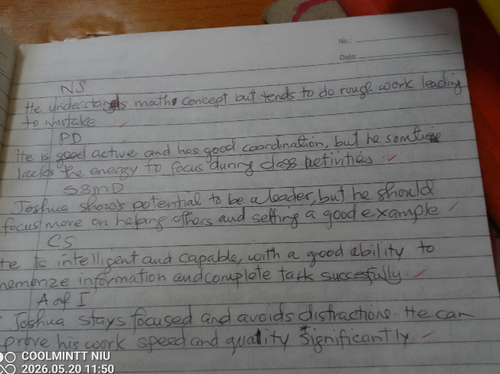 No:
Date:
NS
He understands math concept but tends to do rough work leading
to mistake
PD
He is good active and has good coordination, but he sometimes
lacks the energy to focus during class activities.
S&MD
Joshua shows potential to be a leader, but he should
focus more on helping others and setting a good example
CS
He is intelligent and capable, with a good ability to
memorize information and complete task succesfully.
A of I
Joshua stays focused and avoids distractions. He can
prove his work speed and quality significantly
COOLMINTT NIU
2026.05.20 11:50